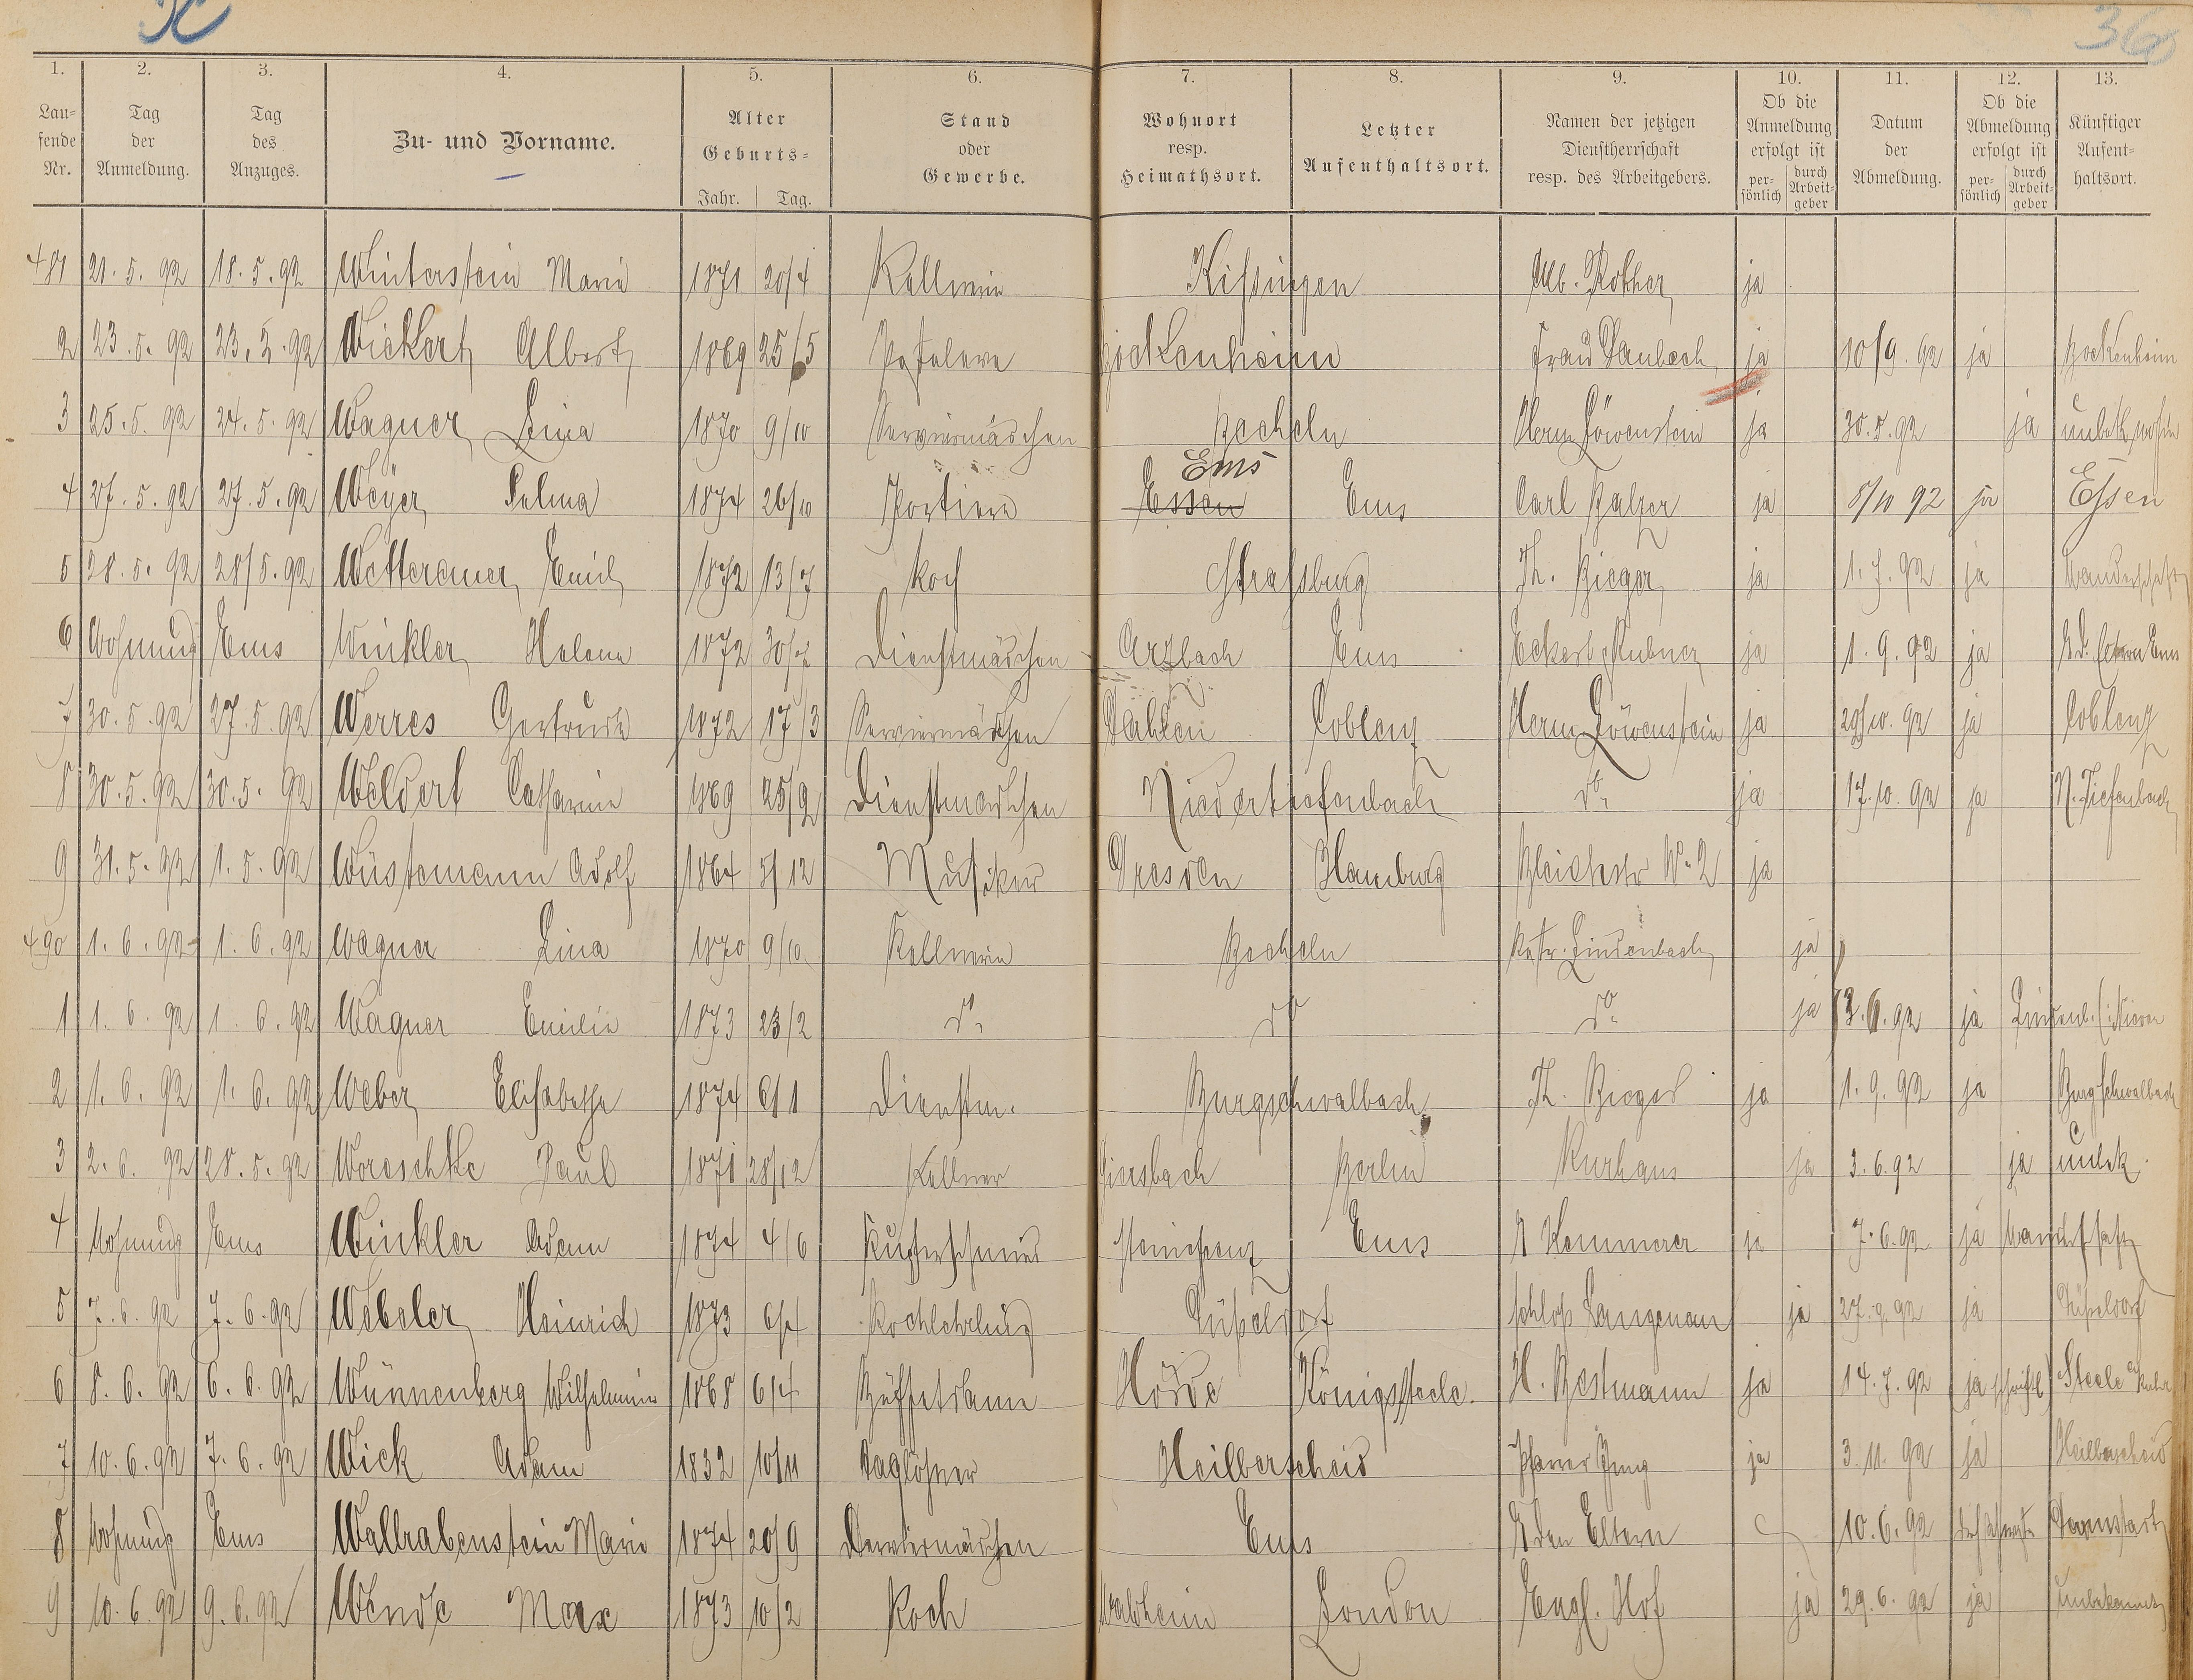 36
1. 2. 3. 4. 5. 6. 7. 8. 9. 10. 11. 12. 13.
Lau-
fende
Nr.
Tag
der
Anmeldung.
Tag
des
Anzuges.
Zu- und Vorname.
Alter
Geburts-
Jahr. Tag.
Stand
oder
Gewerbe.
Wohnort
resp.
Heimathsort.
Letzter
Aufenthaltsort.
Namen der jetzigen
Dienstherrschaft
resp. des Arbeitgebers.
Ob die
Anmeldung
erfolgt ist
per-
sönlich
durch
Arbeit-
geber
Datum
der
Abmeldung.
Ob die
Abmeldung
erfolgt ist
per-
sönlich
durch
Arbeit-
geber
Künftiger
Aufent-
haltsort.
481 21. 5. 92 18. 5. 92 Winterstein Marie 1871 20/4 Kellnerin Kissingen Alb. Rother ja
2 23. 5. 92 23. 5. 92 Wickert Albert 1869 25/5 Bockenheim Frau Daubach ja 10/9. 92 ja Bockenheim
3 25. 5. 92 24. 5. 92 Wagner Lina 1870 9/10 Serviermädchen Becheln Herm. Löwenstein ja 30. 5. 92 ja unbek. wohin
Ems
4 27. 5. 92 27. 5. 92 Weyer Selma 1874 26/10 Portiere Essen Ems Carl Balzer ja 5/10 92 ja Essen
5 28. 5. 92 28/5. 92 Wetterauer Emil 1872 13/7 Koch Strassburg Th. Bieger ja 1. 7. 92 ja Wanderschaft
6 Wohnung Ems Winkler Helene 1872 Dienstmädchen Arzbach Ems Eckert ja 1. 9. 92 ja Ems
7 30. 5. 92 27. 5. 92 Werres Gertrude 1872 17/3 Serviermädchen Dahlen Coblenz Herm. Löwenstein ja 29/10. 92 ja Coblenz
8 30. 5. 92 30. 5. 92 Weldert Catharine 1869 25/9 Dienstmädchen Niedertiefenbach do. ja 17. 10. 92 ja N. Tiefenbach
9 31. 5. 92 1. 5. 92 Wüstemann Adolf 1864 5/12 Musiker Dresden Hamburg Bleichstr No 2 ja
490 1. 6. 92 1. 6. 92 Wagner Lina 1870 9/10 Kellnerin Becheln Lindenbach ja
1 1. 6. 92 1. 6. 92 Wagner Emilie 1873 23/2 do. do do. ja 3. 6. 92 ja Nievern
2 1. 6. 92 1. 6. 92 Weber Elisabethe 1874 6/1 Dienstm. Burgschwalbach Th. Bieger ja 1. 9. 92 ja Burgschwalbach
3 2. 6. 92 28. 5. 92 Woreschke Paul 1871 28/12 Kellner Berlin Kurhaus ja 3. 6. 92 ja unbek.
4 Wohnung Ems Winkler Adam 1874 4/6 Kupferschmied Steinefrenz Ems Kemmerer ja 7. 6. 92 ja Wanderschaft
5 7. 6. 92 7. 6. 92 Webeler Heinrich 1873 6/4 Kochlehrling Düsseldorf Schloss Langenau ja 27. 9. 92 ja Düsseldorf
6 8. 6. 92 6. 6. 92 Wünnenberg Wilhelmine 1868 6/4 Büffetdame Hörde Königssteele. H. Bestmann ja 14. 7. 92 ja schriftl Steele a/Ruhr
7 10. 6. 92 7. 6. 92 Wick Adam 1832 10/11 Taglöhner Heilberscheid Pfarrer ja 3. 11. 92 ja Heilberscheid
8 Wohnung Ems Wallrabenstein Marie 1874 20/9 Serviermädchen Ems B den Eltern 10. 6. 92 Darmstadt
9 10. 6. 92 9. 6. 92 Wende Max 1873 10/2 Koch London Engl. Hof ja 29. 6. 92 ja unbekannt